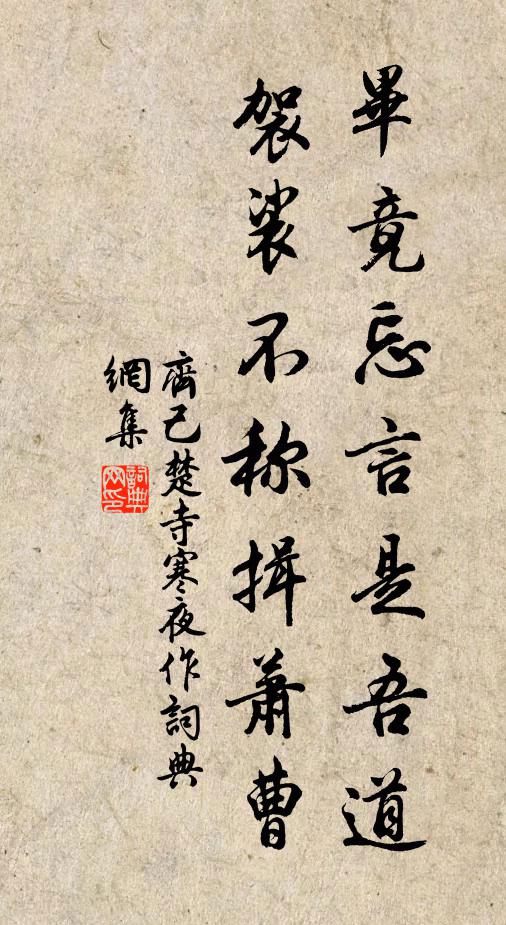 畢竟忘言是吾道
袈裟不称揖蕭曹
齊己楚寺寒夜作詞典
網集
詞典網印